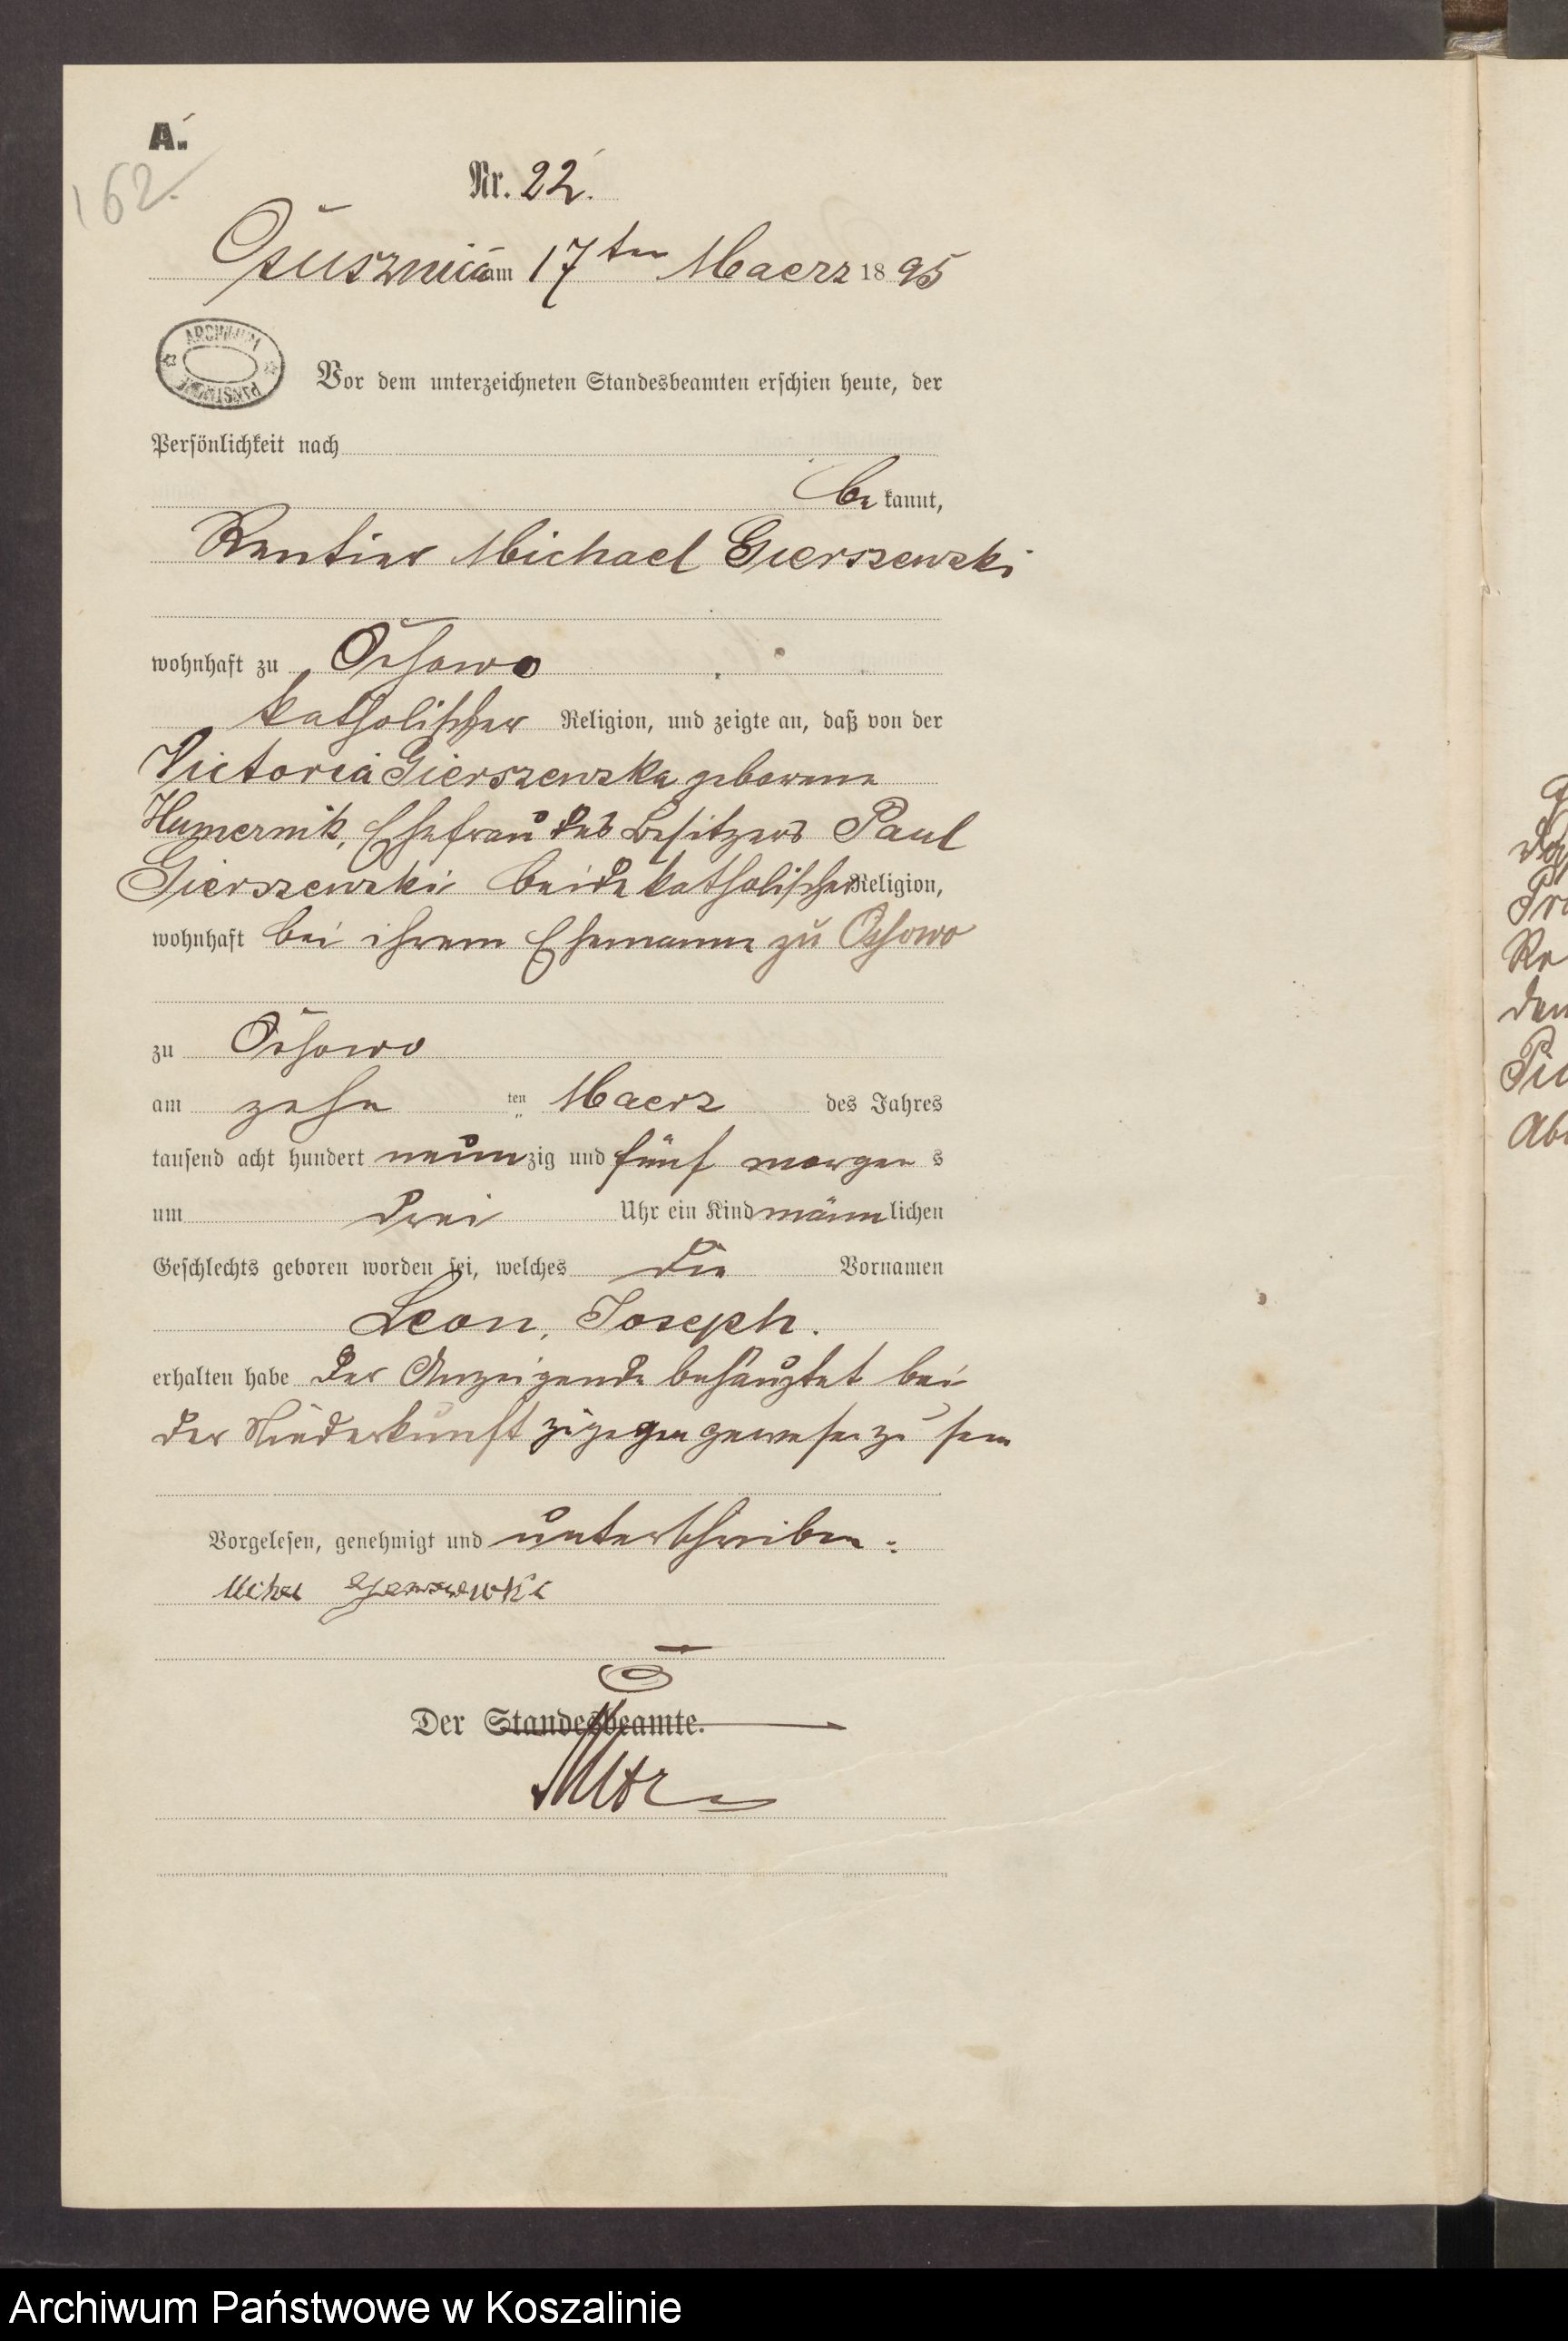 A.
162.
Nr. 22.
am 17ten Maerz 1895
ARCHIWUM PAŃSTWOWE
Vor dem unterzeichneten Standesbeamten erschien heute, der
Persönlichkeit nach
be kannt,
Rentier Michael Gierszewski
wohnhaft zu Ossowo
katholischer Religion, und zeigte an, daß von der
Victoria Gierszewska geborene
Humernik, Ehefrau des Besitzers Paul
Gierszewski beide katholischer Religion,
wohnhaft bei ihrem Ehemanne zu Ossowo
zu Ossowo
am zehn ten Maerz des Jahres
tausend acht hundert neunzig und fünf morgens
um drei Uhr ein Kind männlichen
Geschlechts geboren worden sei, welches die Vornamen
Leon, Joseph.
erhalten habe Der Anzeigende behauptet bei
der Niederkunft zugegen gewesen zu sein
Vorgelesen, genehmigt und unterschrieben.
Der Standesbeamte.
Archiwum Państwowe w Koszalinie